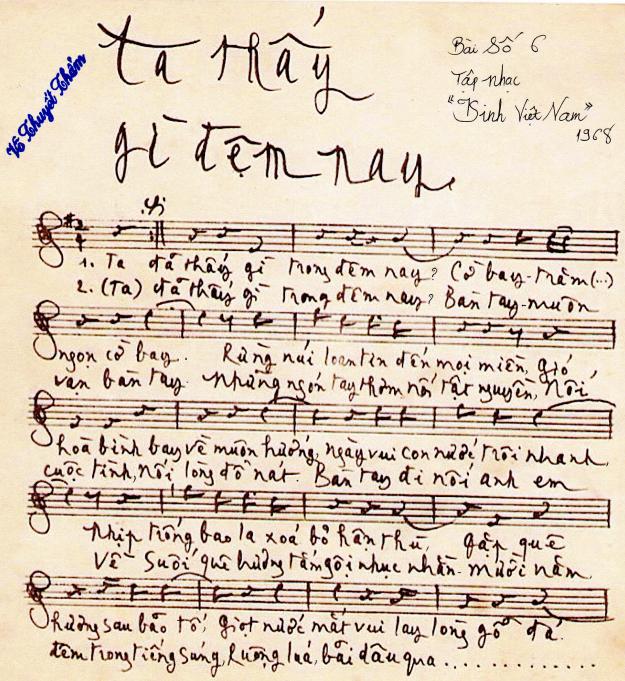 Ta thấy
gì đêm nay.
Bài Số 6
Tập nhạc
"Kinh Việt Nam"
1968
Võ Thuyết Thẩm
2
4
1. Ta đã thấy gì trong đêm nay? Cờ bay - trăm (...)
2. (Ta) đã thấy gì trong đêm nay? Bàn tay - muôn
ngọn cờ bay. Rừng núi loan tin đến mọi miền, gió
vạn bàn tay. Những ngón tay thơm nối tật nguyền, Nối
hoà bình bay về muôn hướng, ngày vui con nước trôi nhanh,
cuộc tình, nối lòng đổ nát. Bàn tay đi nối anh em
Nhịp trống bao la xoá bỏ hận thù, gặp quê
Về suối quê hương tắm gội nhục nhằn. Mười năm
hương sau bão tố, giọt nước mắt vui lay lòng gỗ đá.
đêm trong tiếng súng, Ruộng lúa, bãi dâu qua . . . . . . . . . . . . .